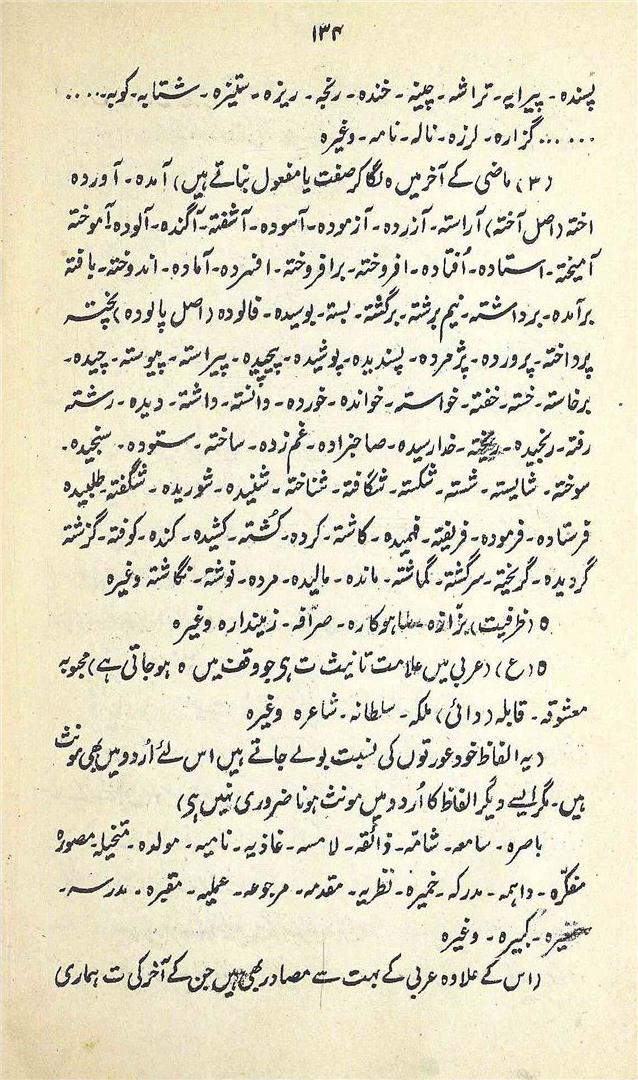 ۱۳۴
پسندہ۔ پیرایہ۔ تراشہ۔ چینہ۔ خندہ۔ رنجہ۔ ریزہ۔ ستیزہ۔ شتابہ۔ کوبہ.....
...... گزارہ۔ لرزہ۔ نالہ۔ نامہ۔ وغیرہ
(۳) ماضی کے آخر میں ہ لگا کر صفت یا مفعول بناتے ہیں) آمدہ۔ آوردہ
اختہ (اصل آختہ) آراستہ۔ آزردہ۔ آزمودہ۔ آسودہ۔ آشفتہ۔ آگندہ۔ آلودہ۔ آموختہ
آمیختہ۔ استادہ۔ اُفتادہ۔ افروختہ۔ برافروختہ۔ افسردہ۔ آمادہ۔ اندوختہ۔ بافتہ
برآمدہ۔ برداشتہ۔ نیم برشتہ۔ برگشتہ۔ بستہ۔ بوسیدہ۔ فالودہ (اصل پالودہ) پختہ
پرداختہ۔ پروردہ۔ پژمردہ۔ پسندیدہ۔ پوشیدہ۔ پیچیدہ۔ پیراستہ۔ پیوستہ۔ چیدہ۔
برخاستہ۔ خستہ۔ خفتہ۔ خواستہ۔ خواندہ۔ خوردہ۔ دانستہ۔ داشتہ۔ دیدہ۔ رشتہ
رفتہ۔ رنجیدہ۔ ریختہ۔ خدارسیدہ۔ صاحبزادہ۔ غم زدہ۔ ساختہ۔ ستودہ۔ سنجیدہ۔
سوختہ۔ شایستہ۔ شستہ۔ شکستہ۔ شگافتہ۔ شناختہ۔ شنیدہ۔ شوریدہ۔ شگفتہ۔ طلبیدہ
فرستادہ۔ فرمودہ۔ فریفتہ۔ فہمیدہ۔ کاشتہ۔ کردہ۔ کُشتہ۔ کشیدہ۔ کندہ۔ کوفتہ۔ گزشتہ
گردیدہ۔ گریختہ۔ سرگشتہ۔ گماشتہ۔ ماندہ۔ مالیدہ۔ مردہ۔ نوشتہ۔ نگاشتہ وغیرہ
ہ (ظرفیت) بزّازہ۔ ساہوکارہ۔ صرّافہ۔ زمیندارہ وغیرہ
ہ (ع) (عربی میں علامت تانیث ت ہی جو وقف میں ہ ہو جاتی ہے) محبوبہ
معشوقہ۔ قابلہ (دائی) ملکہ۔ سلطانہ۔ شاعرہ وغیرہ
(یہ الفاظ خود عورتوں کی نسبت بولے جاتے ہیں اس لئے اُردو میں بھی مونث
ہیں۔ مگر ایسے دیگر الفاظ کا اُردو میں مونث ہونا ضروری نہیں ہی)
باصرہ۔ سامعہ۔ شامّہ۔ ذائقہ۔ لامسہ۔ غاذیہ۔ نامیہ۔ مولدہ۔ متخیلہ۔ مصورہ
مفکّرہ۔ واہمہ۔ مدرکہ۔ خمیرہ۔ نظریہ۔ مقدمہ۔ مرجوعہ۔ عملیہ۔ مقبرہ۔ مدرسہ۔
صغیرہ۔ کبیرہ۔ وغیرہ
(اس کے علاوہ عربی کے بہت سے مصادر بھی ہیں جن کے آخر کی ت ہماری